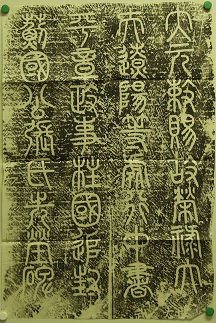 大元敕賜故榮祿大
夫遼陽等處行中書
平章政事柱國追封
薊國公張氏先塋碑